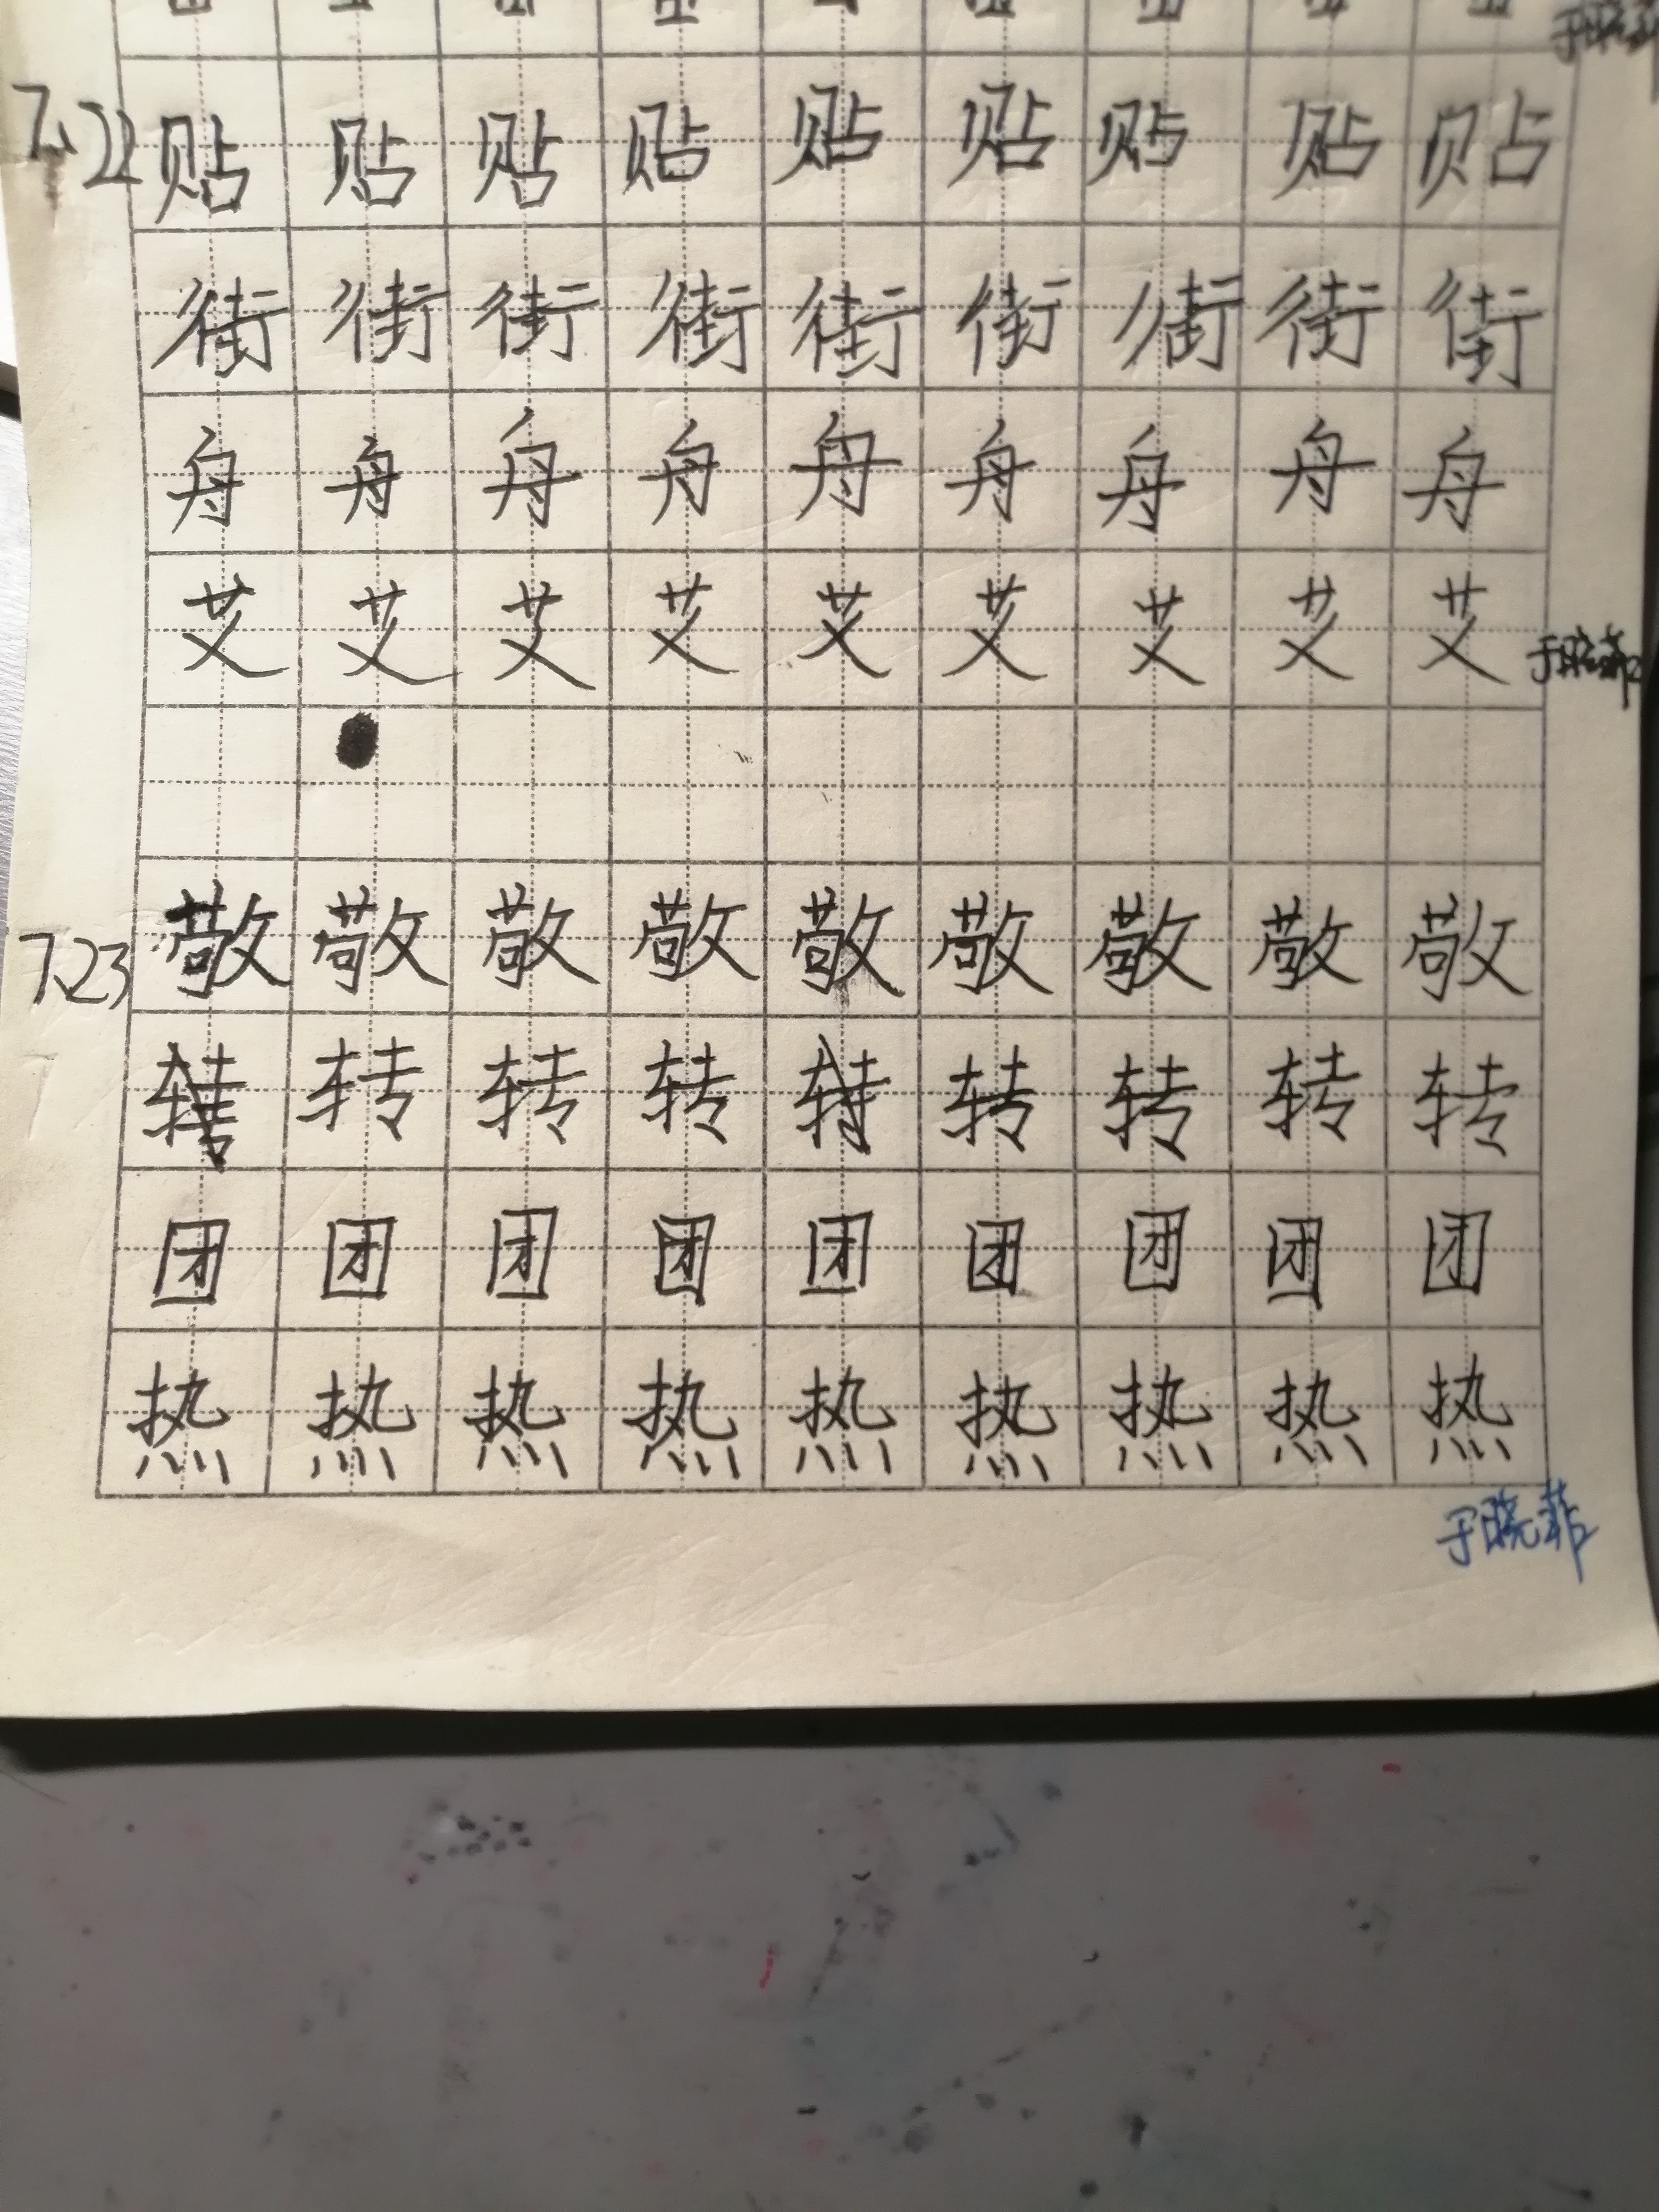 7.22 贴贴贴贴贴贴贴贴贴
街街街街街街街街街
舟舟舟舟舟舟舟舟舟
艾艾艾艾艾艾艾艾艾 于晓菲
7.23 敬敬敬敬敬敬敬敬敬
转转转转转转转转转
团团团团团团团团团
热热热热热热热热热
于晓菲